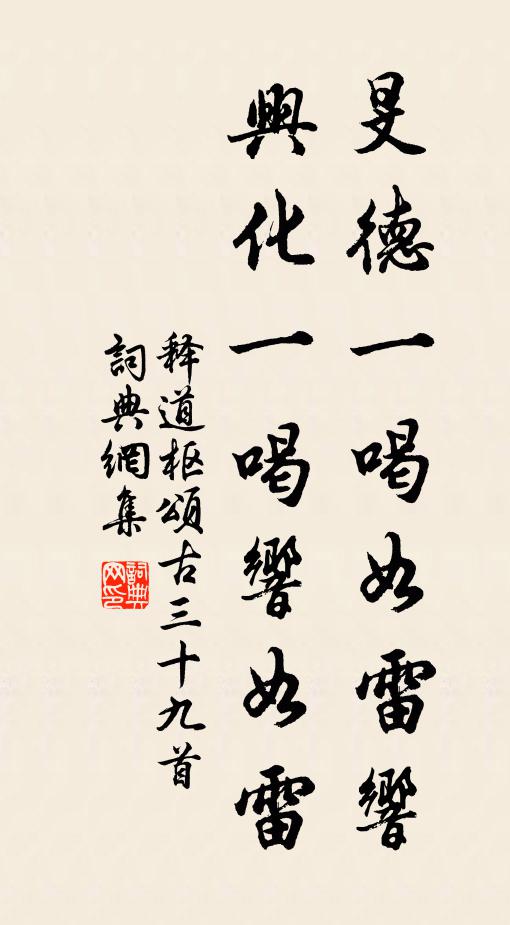 旻德一喝如雷響
興化一喝響如雷
释道枢頌古三十九首
詞典網集
詞典网印